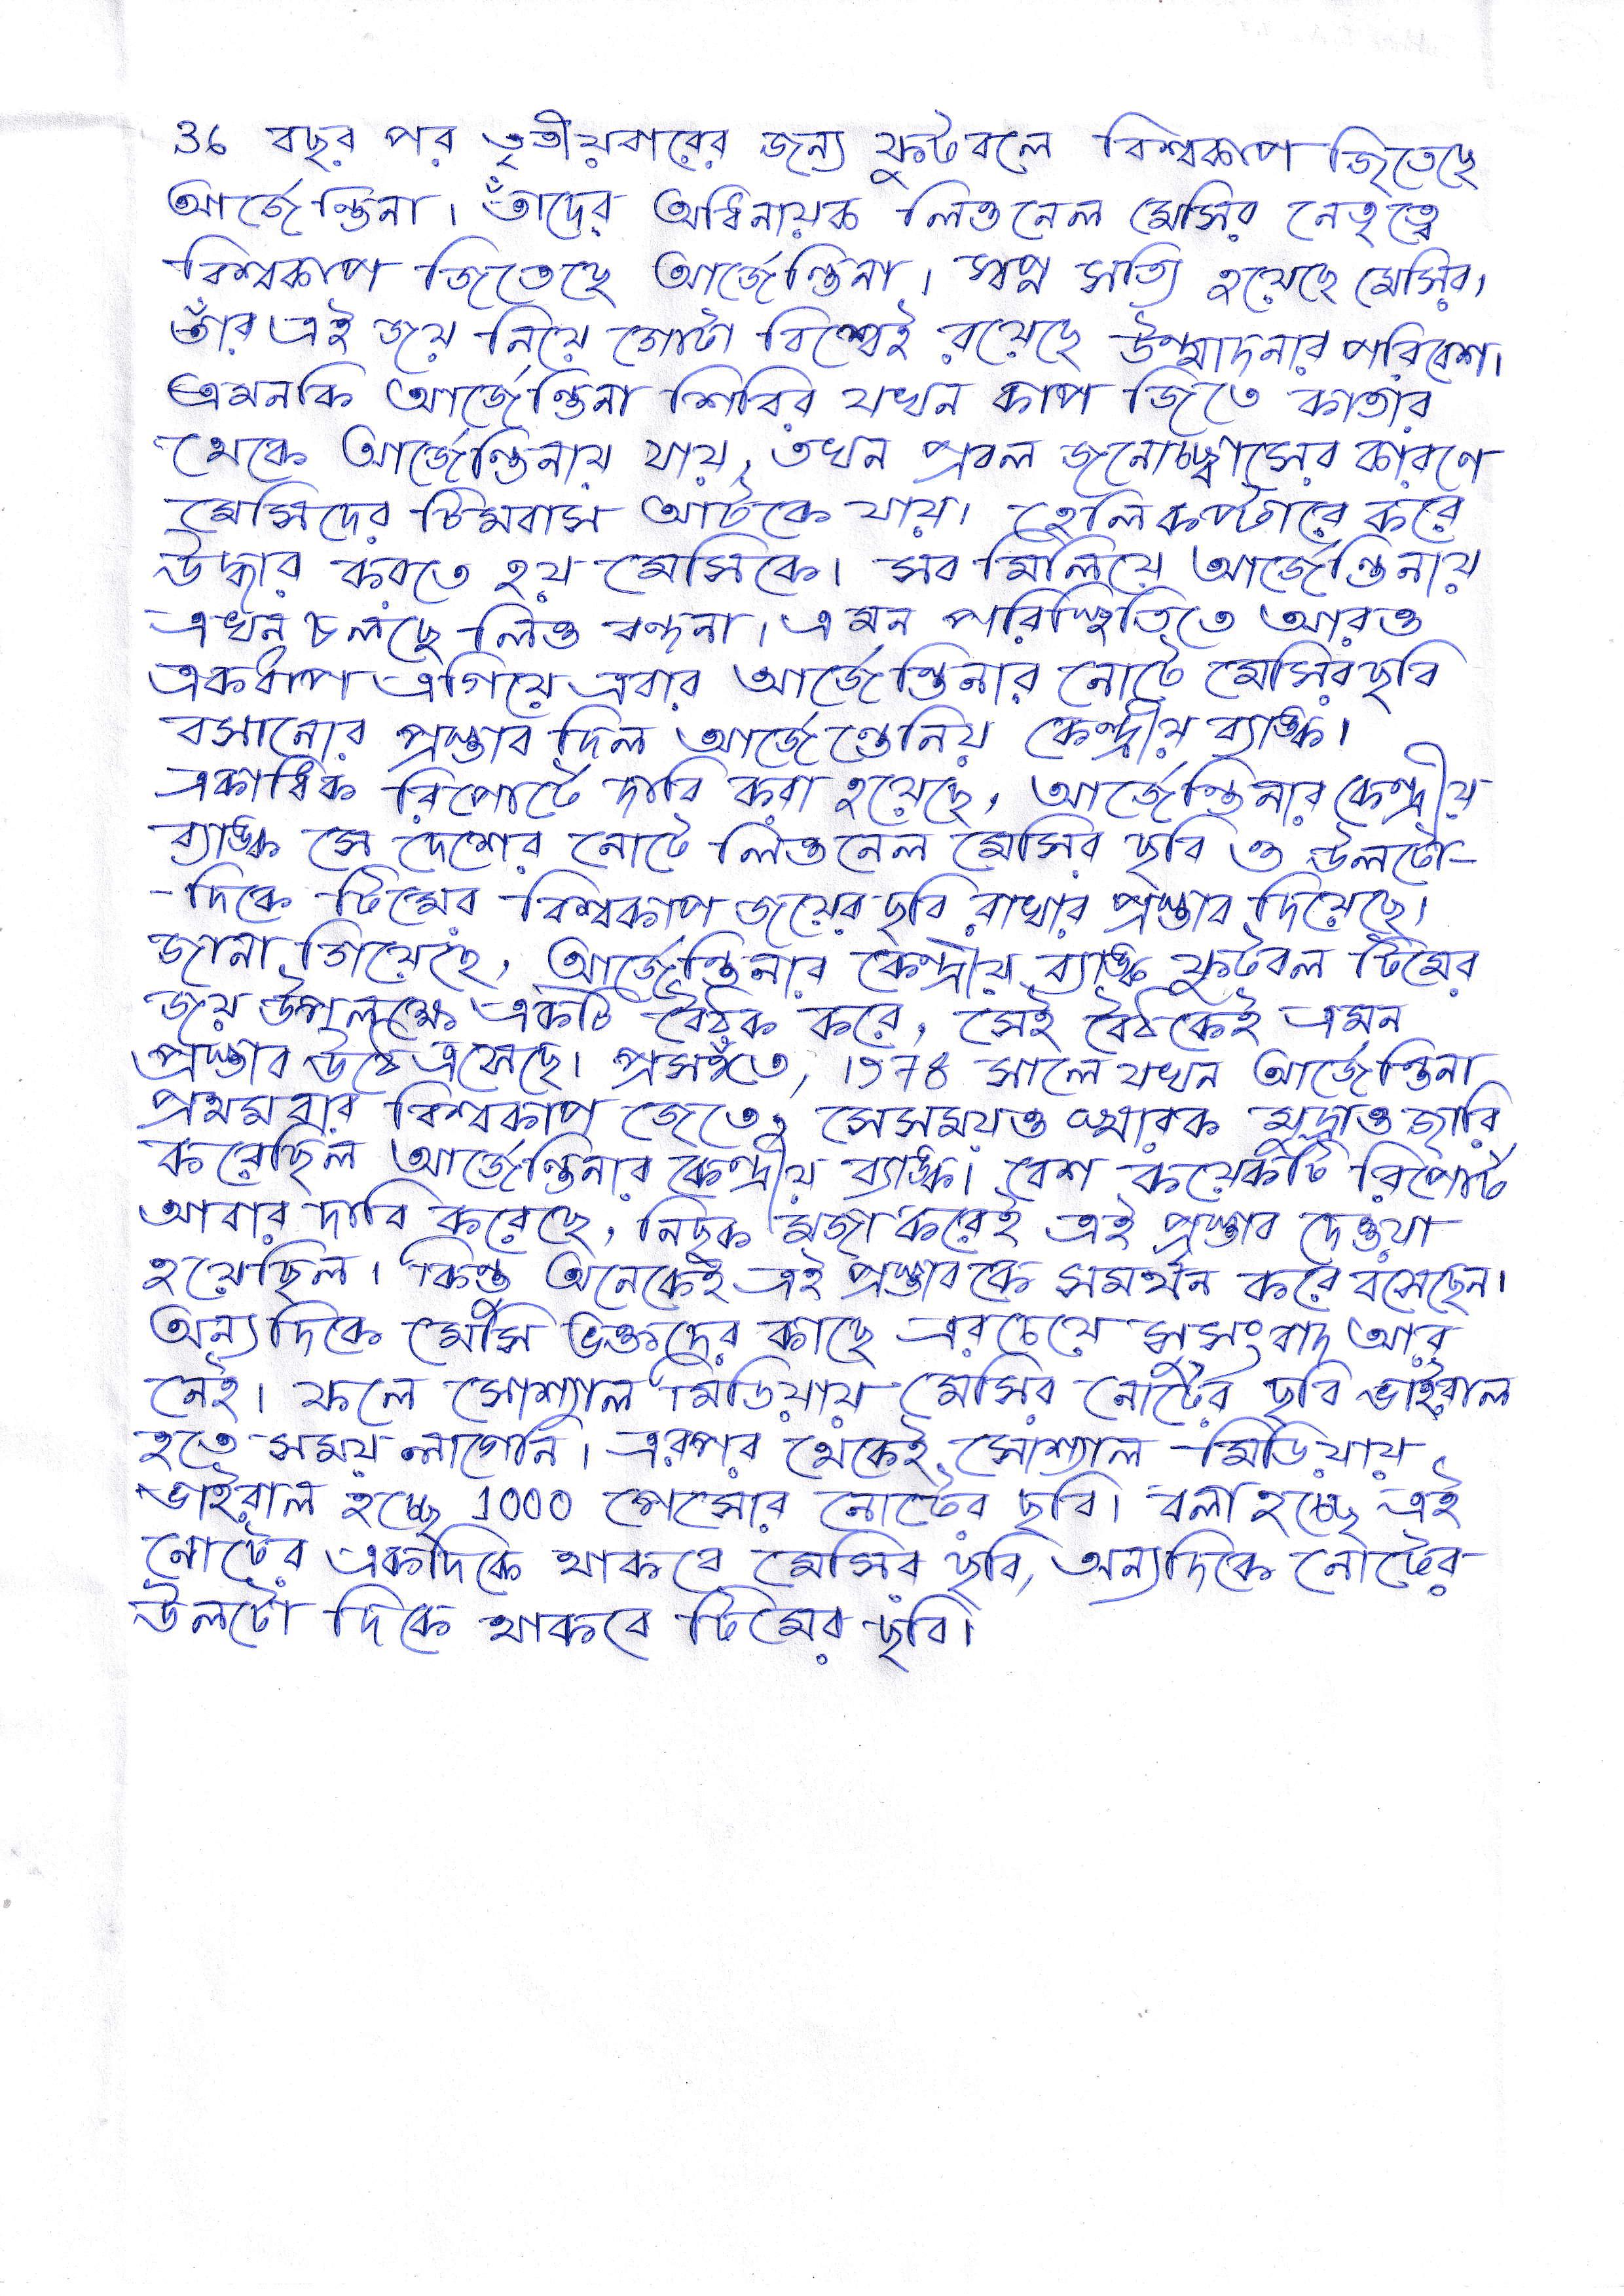 36 বছর পর তৃতীয়বারের জন্য ফুটবলে বিশ্বকাপ জিতেছে
আর্জেন্তিনা। তাঁদের অধিনায়ক লিওনেল মেসির নেতৃত্বে
বিশ্বকাপ জিতেছে আর্জেন্তিনা। স্বপ্ন সত্যি হয়েছে মেসির।
তাঁর এই জয় নিয়ে গোটা বিশ্বেই রয়েছে উন্মাদনার পরিবেশ।
এমনকি আর্জেন্তিনা শিবির যখন কাপ জিতে কাতার
থেকে আর্জেন্তিনায় যায়, তখন প্রবল জনোচ্ছ্বাসের কারণে
মেসিদের টিমবাস আটকে যায়। হেলিকপ্টারে করে
উদ্ধার করতে হয় মেসিকে। সব মিলিয়ে আর্জেন্তিনায়
এখন চলছে লিও বন্দনা। এমন পরিস্থিতিতে আরও
একধাপ এগিয়ে এবার আর্জেন্তিনার নোটে মেসির ছবি
বসানোর প্রস্তাব দিল আর্জেন্তেনিয় কেন্দ্রীয় ব্যাঙ্ক।
একাধিক রিপোর্টে দাবি করা হয়েছে, আর্জেন্তিনার কেন্দ্রীয়
ব্যাঙ্ক সে দেশের নোটে লিওনেল মেসির ছবি ও উলটো-
-দিকে টিমের বিশ্বকাপ জয়ের ছবি রাখার প্রস্তাব দিয়েছে।
জানা গিয়েছে, আর্জেন্তিনার কেন্দ্রীয় ব্যাঙ্ক ফুটবল টিমের
জয় উপলক্ষে একটি বৈঠক করে, সেই বৈঠকেই এমন
প্রস্তাব উঠে এসেছে। প্রসঙ্গত, 1978 সালে যখন আর্জেন্তিনা
প্রথমবার বিশ্বকাপ জেতে, সেসময়ও স্মারক মুদ্রাও জারি
করেছিল আর্জেন্তিনার কেন্দ্রীয় ব্যাঙ্ক। বেশ কয়েকটি রিপোর্ট
আবার দাবি করেছে, নিছক মজা করেই এই প্রস্তাব দেওয়া
হয়েছিল। কিন্তু অনেকেই এই প্রস্তাবকে সমর্থন করে বসেছেন।
অন্যদিকে মেসি ভক্তদের কাছে এরচেয়ে সুসংবাদ আর
নেই। ফলে সোশ্যাল মিডিয়ায় মেসির নোটের ছবি ভাইরাল
হতে সময় লাগেনি। এরপর থেকেই সোশ্যাল মিডিয়ায়
ভাইরাল হচ্ছে 1000 পেসোর নোটের ছবি। বলা হচ্ছে এই
নোটের একদিকে থাকবে মেসির ছবি, অন্যদিকে নোটের
উলটো দিকে থাকবে টিমের ছবি।